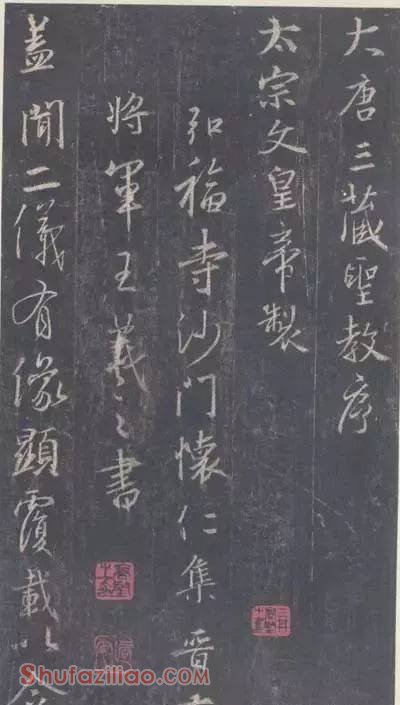 大唐三藏聖教序
太宗文皇帝製
弘福寺沙門懷仁集晉
將軍王羲之書
蓋聞二儀有像顯覆載以含
Shufaziliao.com